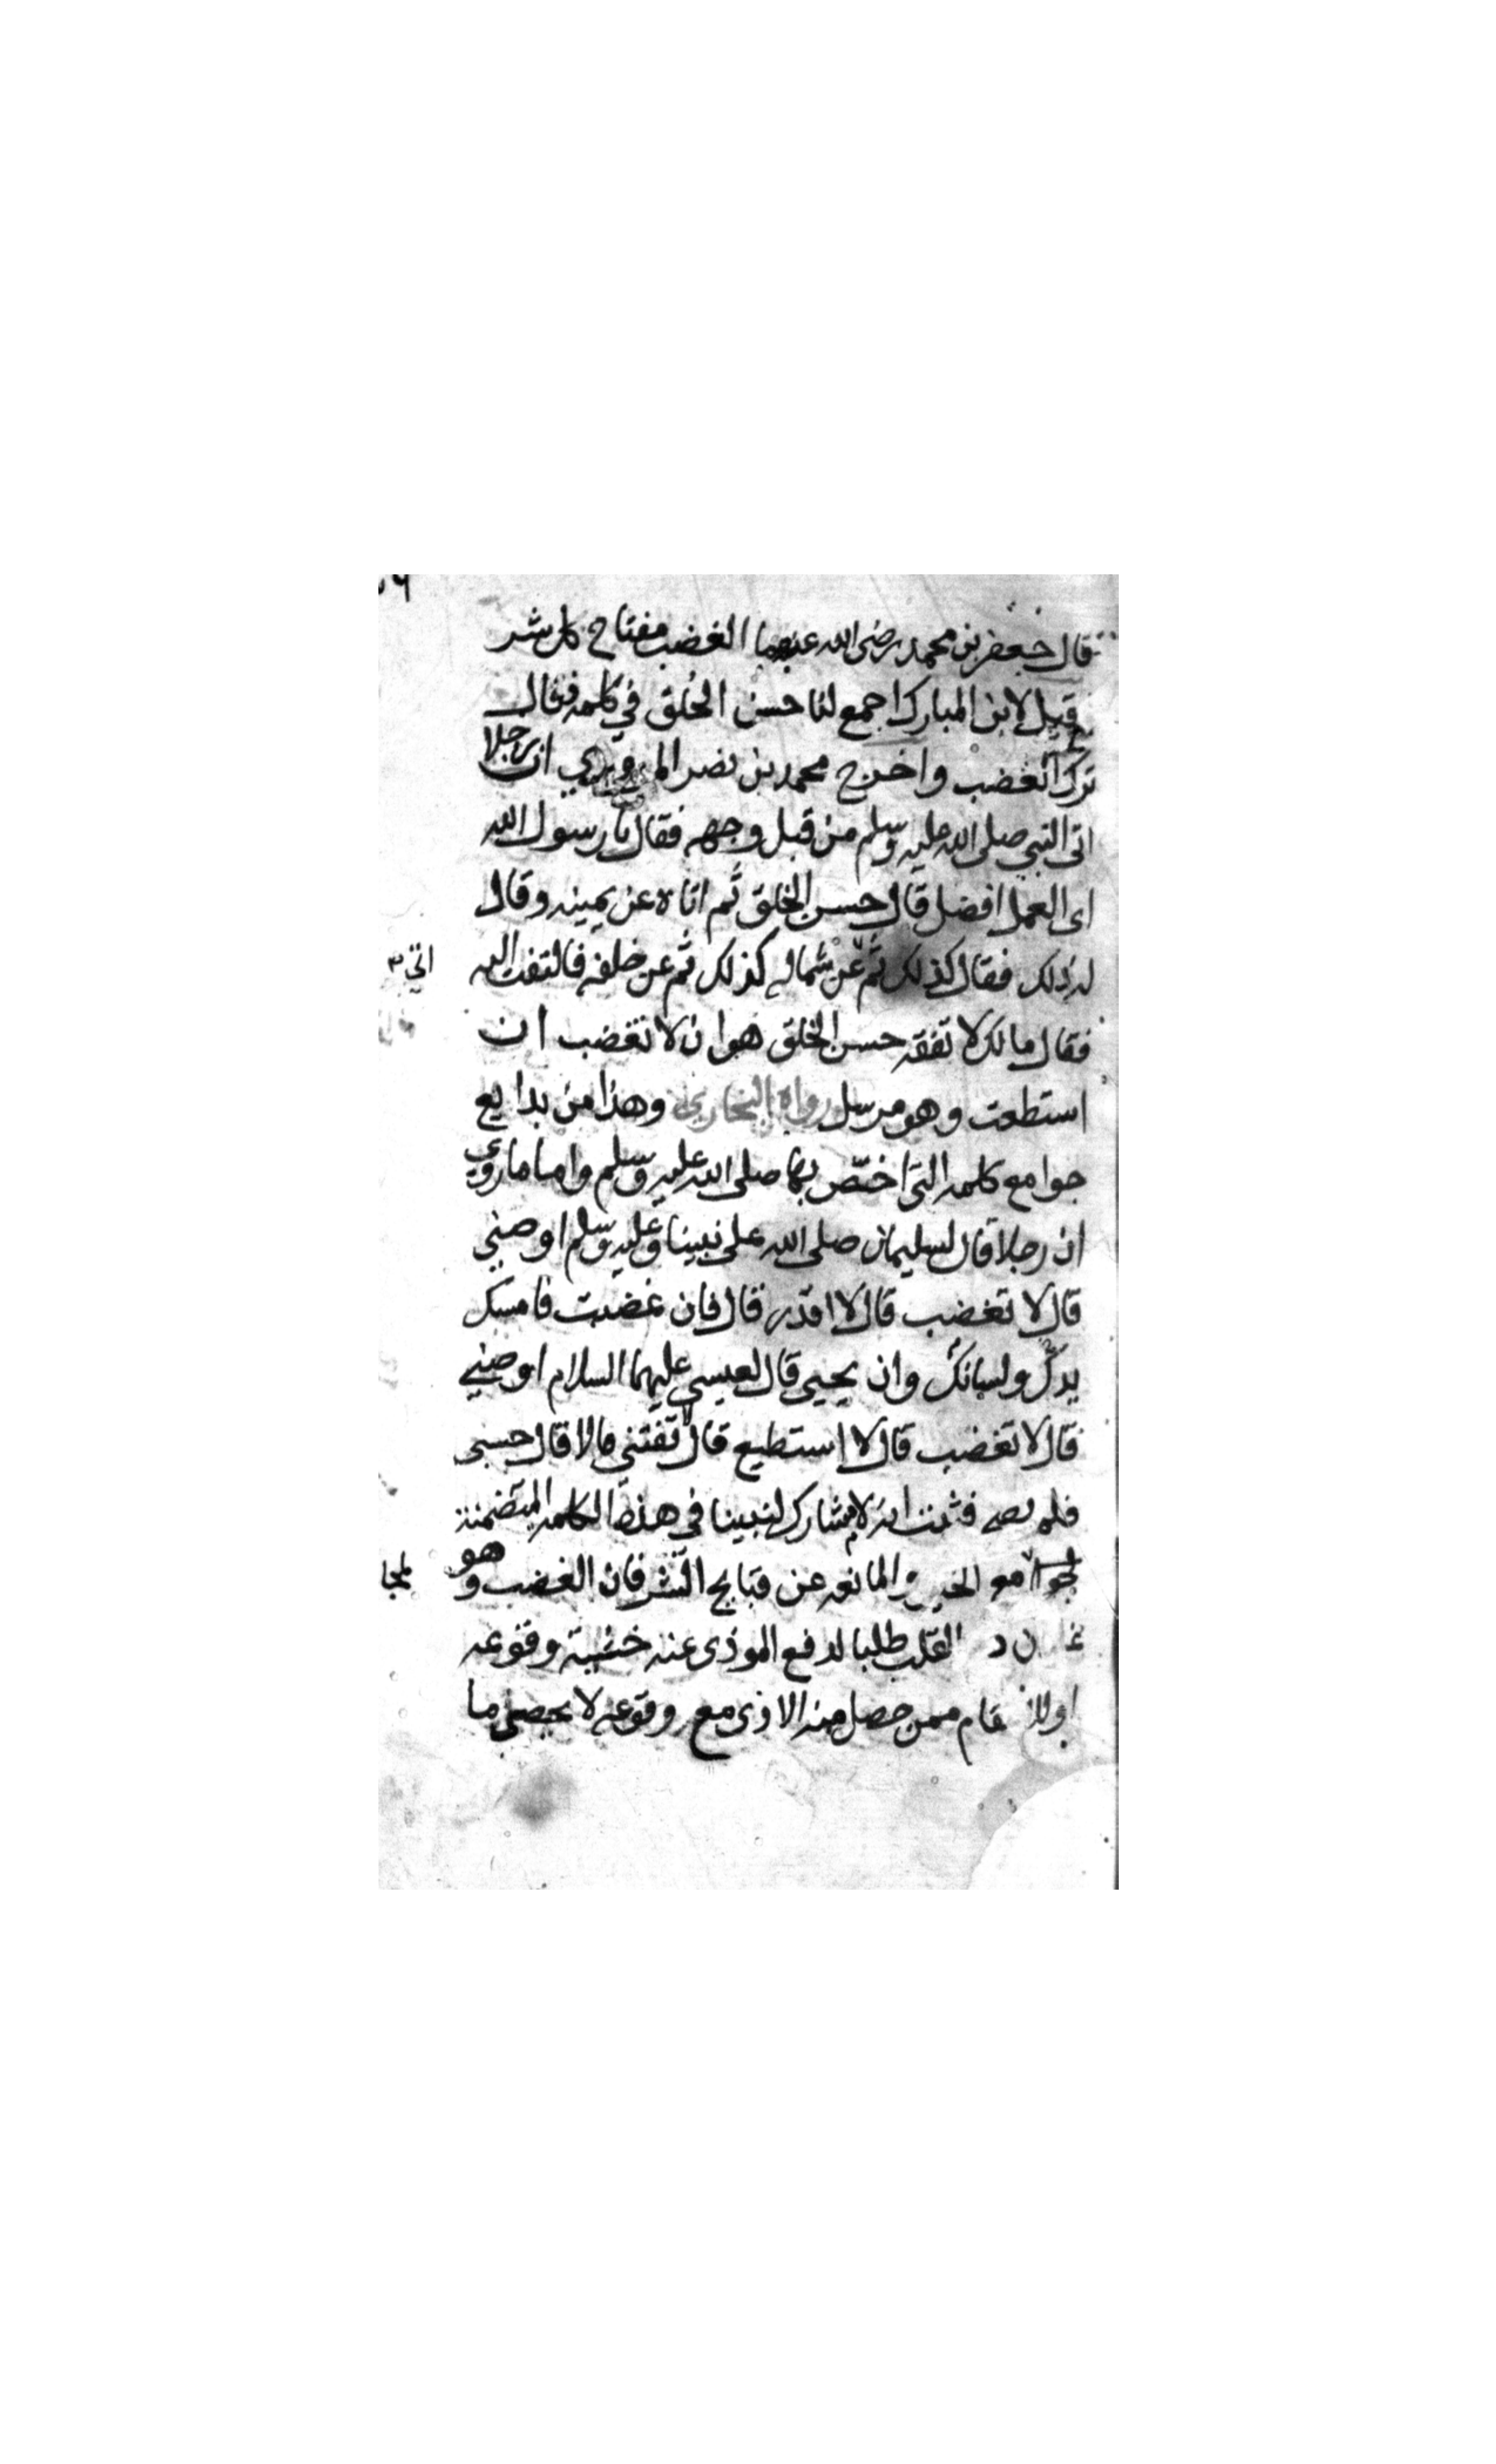 قال جعفر بن محمد رضي الله عنهما الغضب مفتاح كل شر
قيل لابن المبارك اجمع لنا حسن الخُلق في كلمه فقال
ترك الغضب واخرج محمد بن نصر المروزي ان رجلا
اتى النبي صلى الله عليه وسلم من قبل وجهه فقال يا رسول الله
اى العمل افضل قال حسن الخلق ثم اتاه عن يمينه وقال
له ذلك فقال كذلك ثم عن شماله كذلك ثم عن خلفه فالتفت اليه
فقال مالك لا تفقه حسن الخلق هو ان لا تغضب ان
استطعت وهو مرسل رواه البخاري وهذا من بدايع
جوامع كلمه التي اختص بها صلى الله عليه وسلم واما ما روي
ان رجلا قال لسليمان صلى الله على نبينا وعليه وسلم اوصني
قال لا تغضب قال لا اقدر قال فان غضبت فامسك
يدك ولسانك وان يحيى قال لعيسى عليهما السلام اوصني
قال لا تغضب قال لا استطيع قال لا تقتني مالا قال حسبي
فلم يصح فثبت انه لم يشارك نبينا في هذه الكلمه المتضمنة
لجوامع الخير والمانعه عن قبايح الشر فان الغضب وهو
القلب طلبا لدفع الموذى عنه خشية وقوعه
او للانتقام ممن حصل منه الاذى مع وقوعه لا يحصى ما